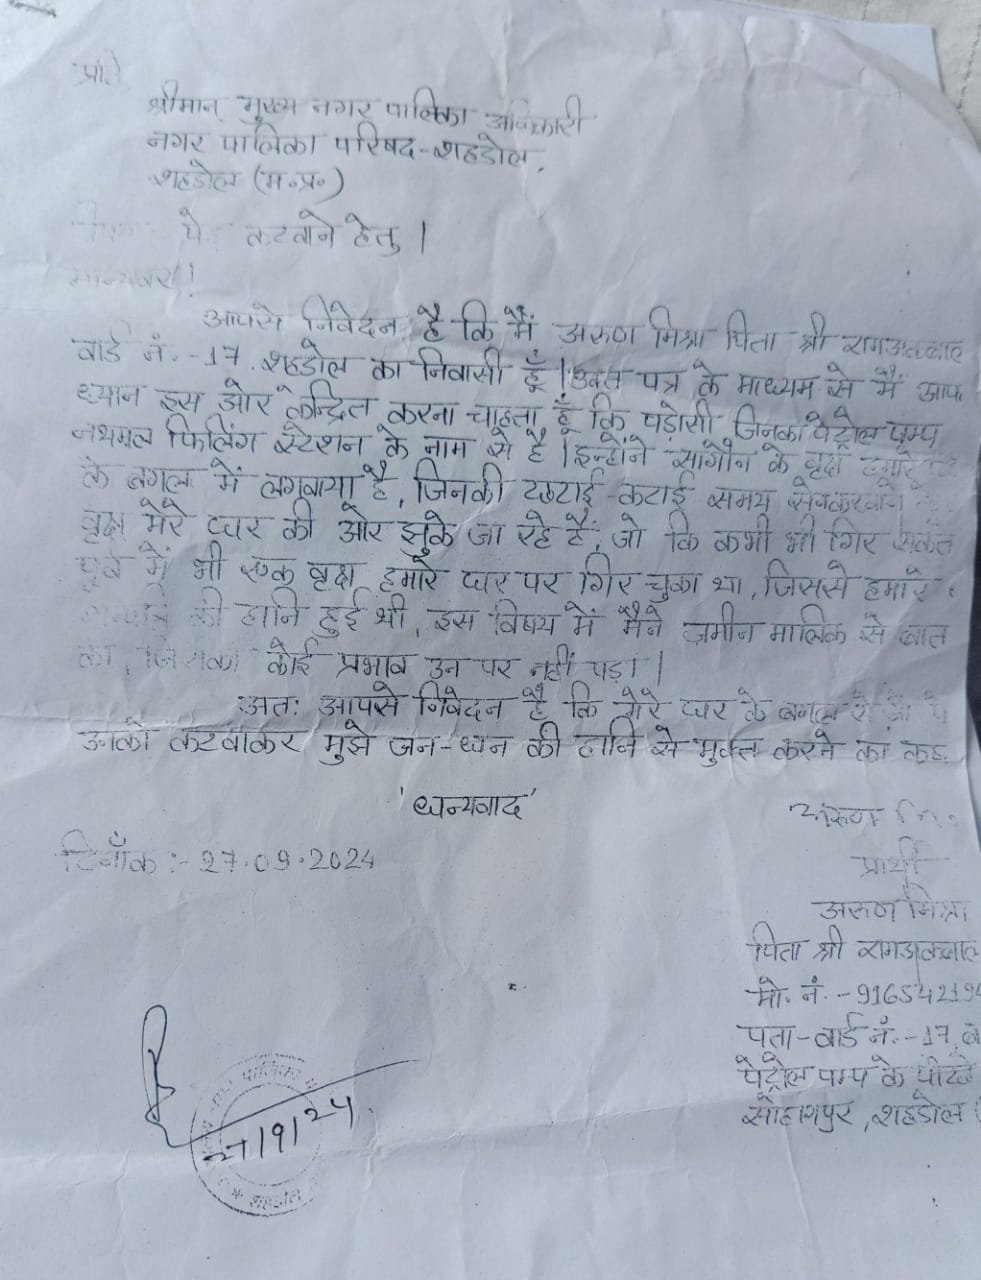 प्रति,
श्रीमान् मुख्य नगर पालिका अधिकारी
नगर पालिका परिषद-शहडोल,
शहडोल (म.प्र.)
कटवाने हेतु।
मान्यवर!
आपसे निवेदन है कि मैं अरुण मिश्रा पिता श्री रामअकबाल
वार्ड नं.-17, शहडोल का निवासी हूँ। उक्त पत्र के माध्यम से मैं
ध्यान इस ओर केन्द्रित करना चाहता हूँ कि पड़ोसी जिनका पेट्रोल पम्प
नथमल फिलिंग स्टेशन के नाम से है। इन्होंने सागौन के वृक्ष हमारे
के बगल में लगवाया है, जिनकी छटाई-कटाई समय
वृक्ष मेरे घर की ओर झुके जा रहे हैं, जो कि कभी भी गिर सकते
पूर्व में भी एक वृक्ष हमारे घर पर गिर चुका था, जिससे हमारे
की हानि हुई थी, इस विषय में मैंने ज़मीन मालिक से बात
की, जिसका कोई प्रभाव उन पर नहीं पड़ा।
अतः आपसे निवेदन है कि मेरे घर के बगल
उनको कटवाकर मुझे जन-धन की हानि से मुक्त करने का
'धन्यवाद'
अरुण
दिनाँक:-27.09.2024
प्रार्थी
अरुण मिश्रा
पिता श्री रामअकबाल
मो. नं.-916542194
पता-वार्ड नं.-17,
पेट्रोल पम्प के पीछे
सोहागपुर, शहडोल
पालिका
27/9/24
शहडोल